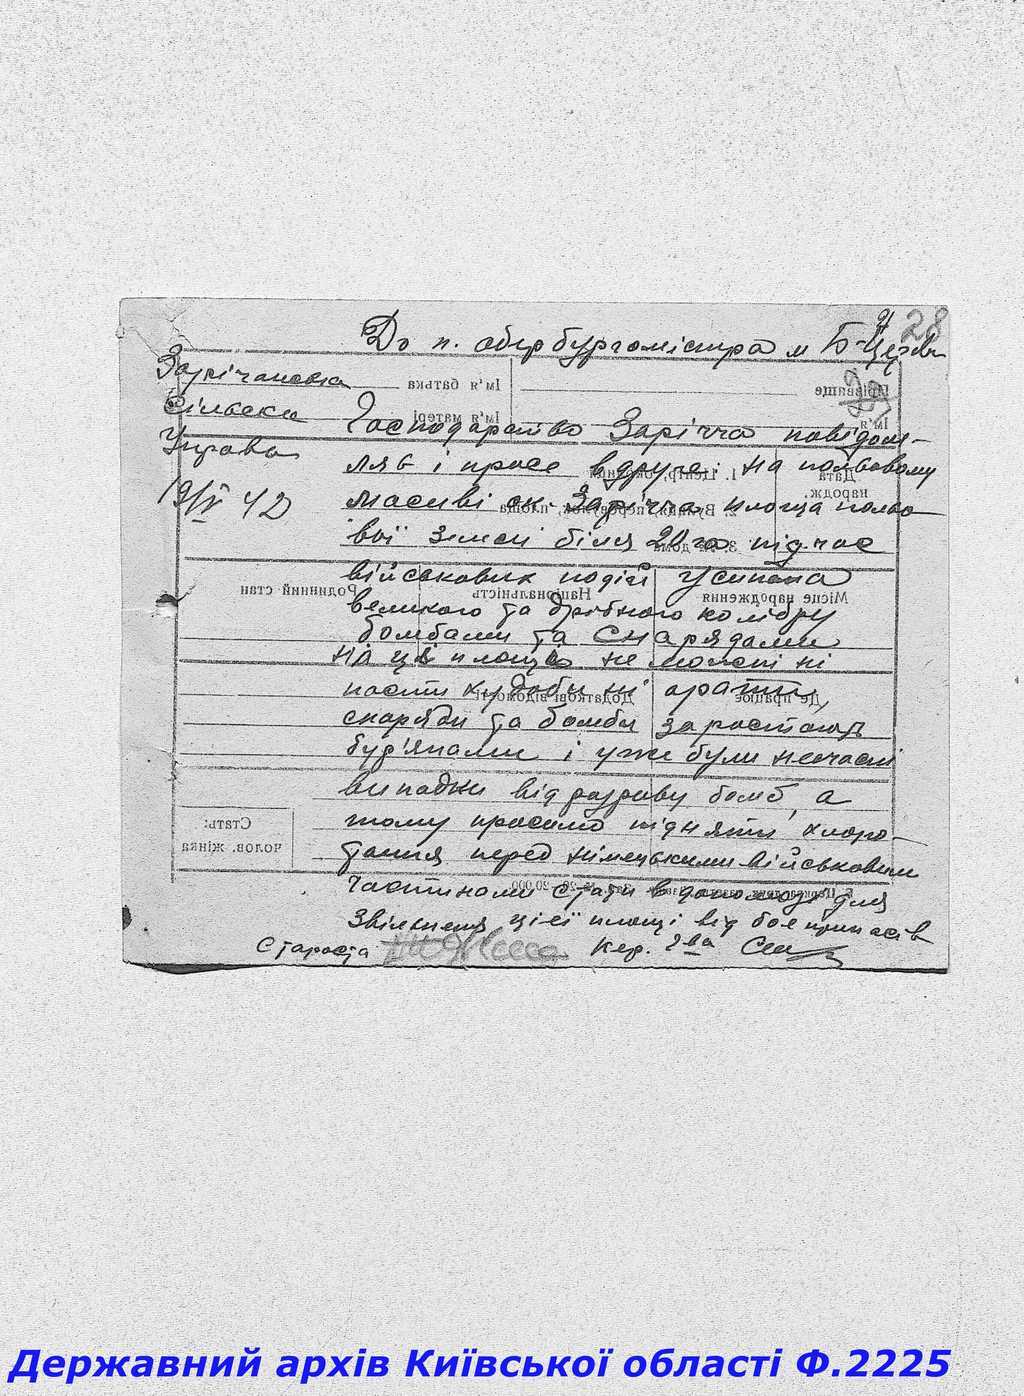 28
До п. обербургомістра м Б-Церкви
Зарічанська
Сільська
Управа
19/IV 42
Господарство Заріччя повідом-
ляє і просе вдруге: на польовому
масиві ок. Заріччя площа польо-
вої землі біля 20 га під час
військових подій усипана
великого та дрібного калібру
бомбами та снарядами
на ці площі не можемо ні
пасти худоби ні орати,
снаряди та бомби заростають
бур'янами і уже були нечасні
випадки від розриву бомб, а
тому просимо підняти клопо-
тання перед німецькими військовими
частинами стати в допомозі для
звільненя цієї площі від боєприпасів
Староста Кер. г-ва
Прізвище
Ім'я
Ім'я батька
Ім'я матері
Дата
народж.
Місце народження
Національність
Родинний стан
Де працює
Додаткові відомості
Стать:
чолов. жінка
Державний архів Київської області Ф.2225